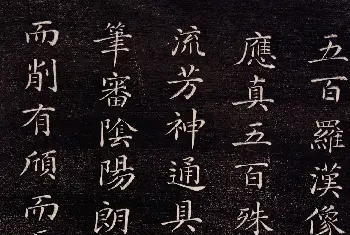 五百羅漢像
應真五百殊
流芳神通具
筆審陰陽朗
而削有頎而